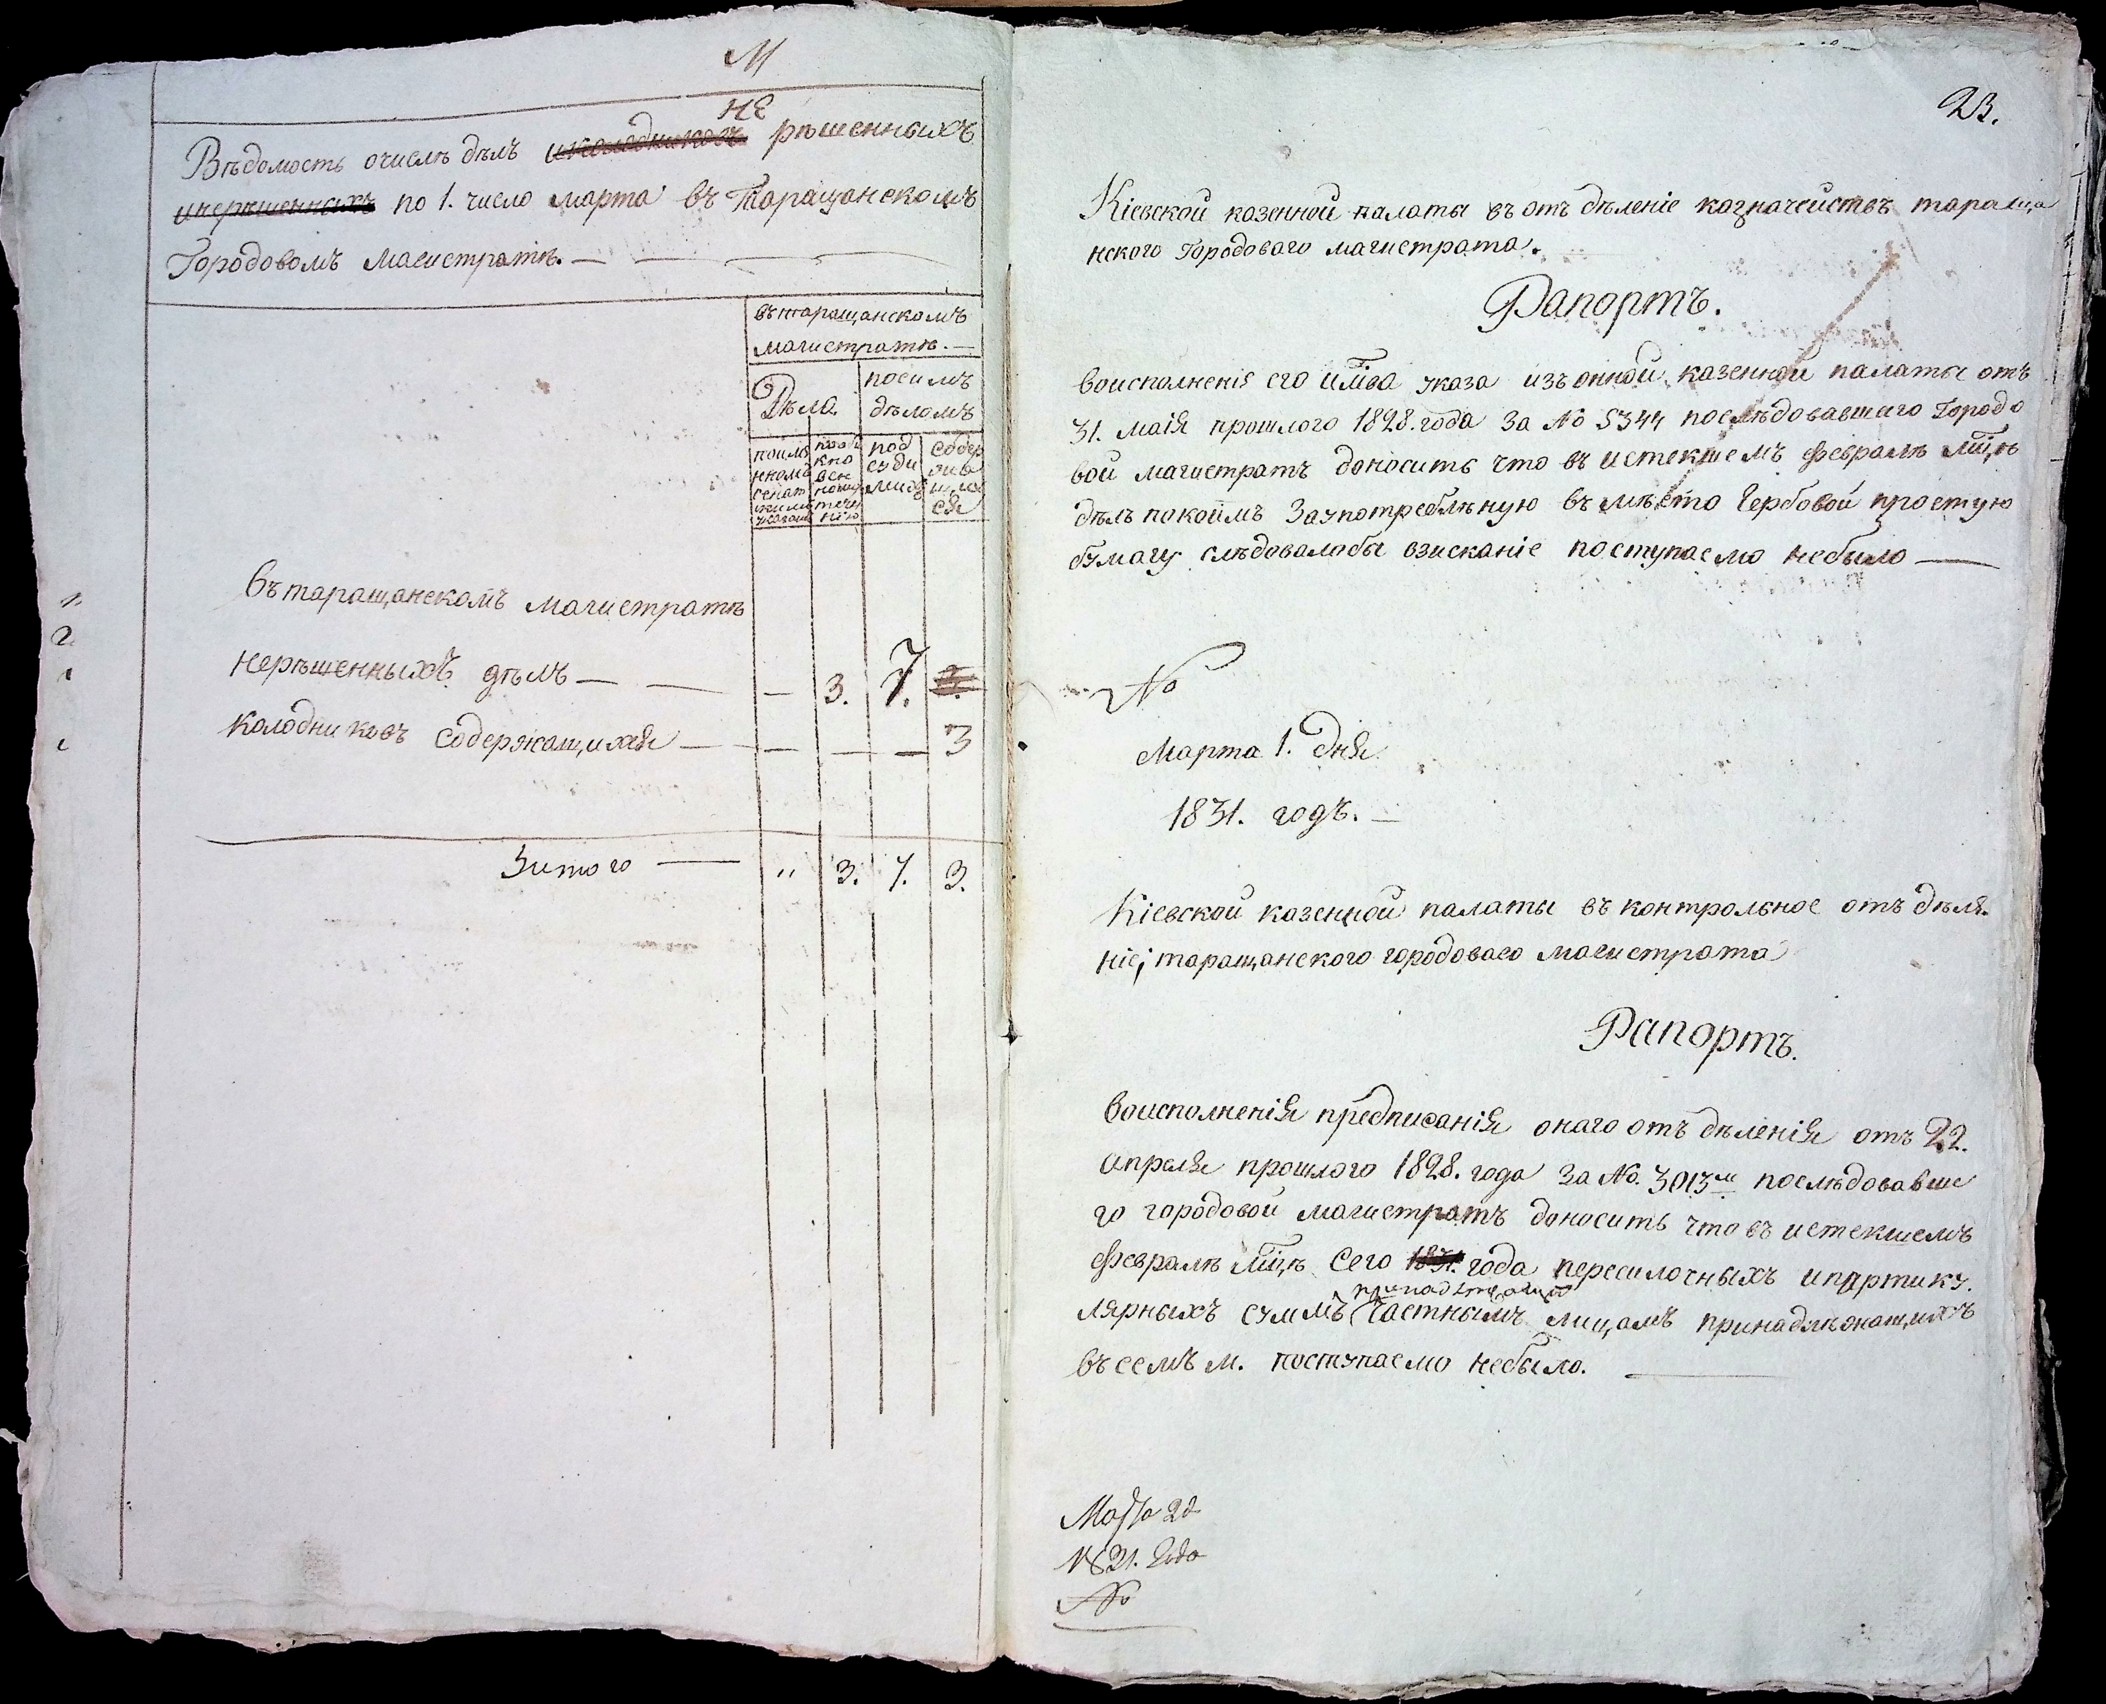 М
не
Вѣдомость очислѣ дѣлъ иколодниковъ рѣшенныхъ
инерѣшенныхъ по 1. число марта въ Таращанскомъ
Городовомъ магистратѣ. —
въ таращанскомъ
магистратѣ. —
Дѣла.
посимъ
дѣломъ
под
суди
михъ
содер
жа
щих
ся
въ таращанскомъ магистратѣ
нерѣшенныхъ дѣлъ — — — 3. 7. 3.
колодниковъ содержащихся — — — — 3
Зитого — " 3. 7. 3.
23.
Кіевской казенной палаты въ отъ дѣленіе казначействъ тараща
нского Городоваго магистрата.
Рапортъ.
Воисполненія его импва указа изъ онной казенной палаты отъ
31. маія прошлого 1828. года за № 5344 послѣдовавшаго Городо
вой магистратъ доноситъ что въ истекшемъ февралѣ мцѣ
дѣлъ покоимъ Заупотреблѣную въ мѣсто Гербовой простую
бумагу слѣдовалобы взисканіе поступаемо небыло —
№
Марта 1. дня
1831. годъ. —
Кіевской казенной палаты въ контрольное отъ дѣле
ніе, таращанского городоваго магистрата
Рапортъ.
Воисполненія предписанія онаго отъ дѣленія отъ 22.
апреля прошлого 1828. года за №. 3013м послѣдовавше
го городовой магистратъ доноситъ что въ истекшемъ
февралѣ мцѣ сего 1831. года пересилочныхъ ипартику
лярныхъ суммъ частнымъ лицамъ принадлѣжащихъ
въ семъ м. поступаемо небыло. —
Марта 2д
1831. Года
№